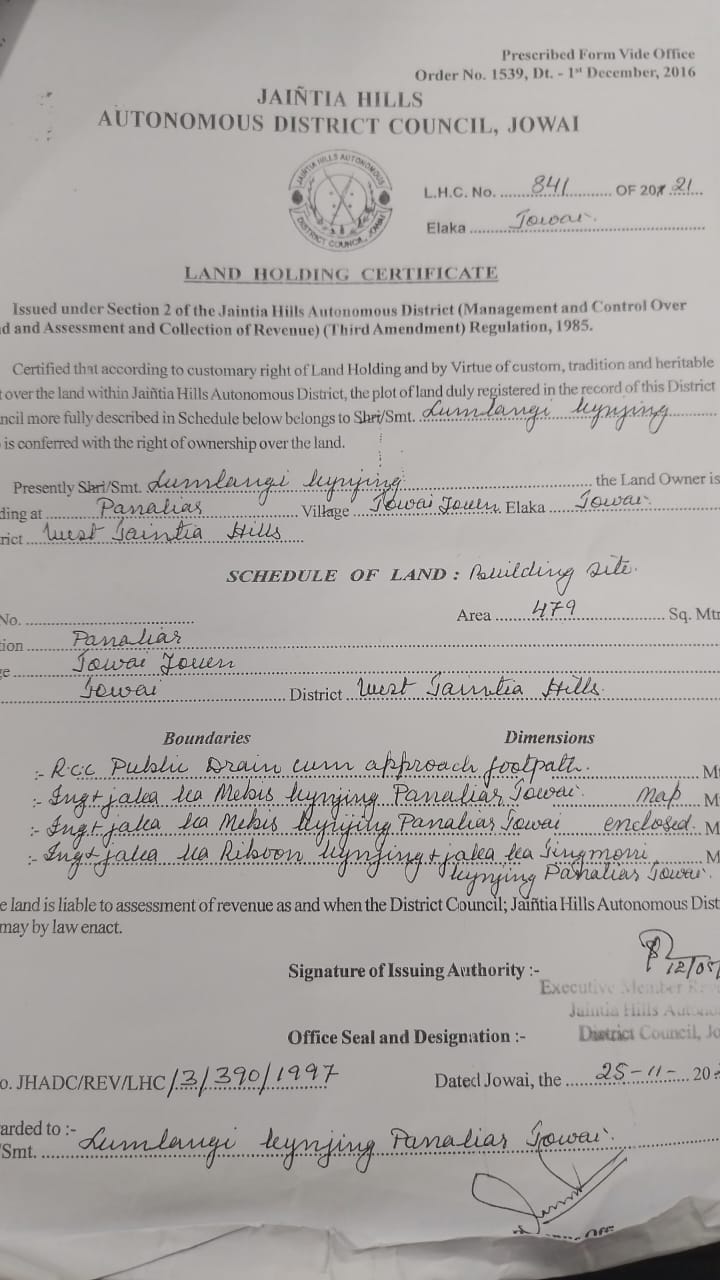 Prescribed Form Vide Office
Order No. 1539, Dt. - 1st December, 2016
JAIÑTIA HILLS
AUTONOMOUS DISTRICT COUNCIL, JOWAI
JAIÑTIA HILLS AUTONOMOUS DISTRICT COUNCIL, JOWAI
L.H.C. No. 841 OF 2021
Elaka Jowai
LAND HOLDING CERTIFICATE
Issued under Section 2 of the Jaintia Hills Autonomous District (Management and Control Over
d and Assessment and Collection of Revenue) (Third Amendment) Regulation, 1985.
Certified that according to customary right of Land Holding and by Virtue of custom, tradition and heritable
t over the land within Jaiñtia Hills Autonomous District, the plot of land duly registered in the record of this District
ncil more fully described in Schedule below belongs to Shri/Smt. Lumlangi kynjing
is conferred with the right of ownership over the land.
Presently Shri/Smt. Lumlangi kynjing the Land Owner is
ding at Panaliar Village Jowai Jowen Elaka Jowai
rict West Jaintia Hills
SCHEDULE OF LAND : Building site.
No.
Area 479 Sq. Mtr
tion Panaliar
ge Jowai
Jowai District West Jaintia Hills.
Boundaries Dimensions
:- R.C.C Public Drain cum approach footpath. M
:- Ing+jaka ka Mekis kynjing Panaliar Jowai. map M
:- Ing+jaka ka Mekis kynjing Panaliar Jowai enclosed. M
:- Ing+jaka ka Riboon kynjing+jaka ka Singmorri M
kynjing Panaliar Jowai.
e land is liable to assessment of revenue as and when the District Council; Jaiñtia Hills Autonomous Dist
may by law enact.
Signature of Issuing Authority :-
12/05/
Executive Member Rev
Jaintia Hills Autono
Office Seal and Designation :- District Council, Jo
o. JHADC/REV/LHC/3/390/1997 Dated Jowai, the 25-11- 20
arded to :-
/Smt. Lumlangi kynjing Panaliar Jowai.